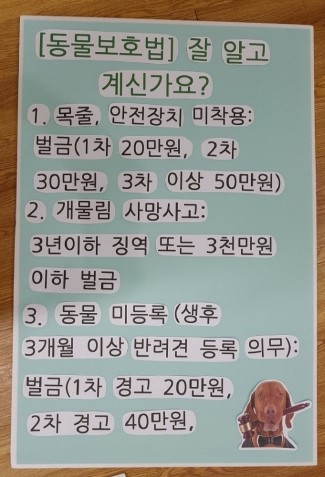 [동물보호법] 잘 알고
계신가요?
1. 목줄, 안전장치 미착용:
벌금(1차 20만원, 2차
30만원, 3차 이상 50만원)
2. 개물림 사망사고:
3년이하 징역 또는 3천만원
이하 벌금
3. 동물 미등록 (생후
3개월 이상 반려견 등록 의무):
벌금(1차 경고 20만원,
2차 경고 40만원,